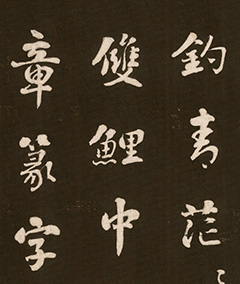 釣青茫
雙鯉中
章篆字